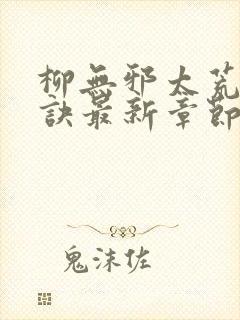 柳無邪太荒
訣最新章節
鬼沫佐